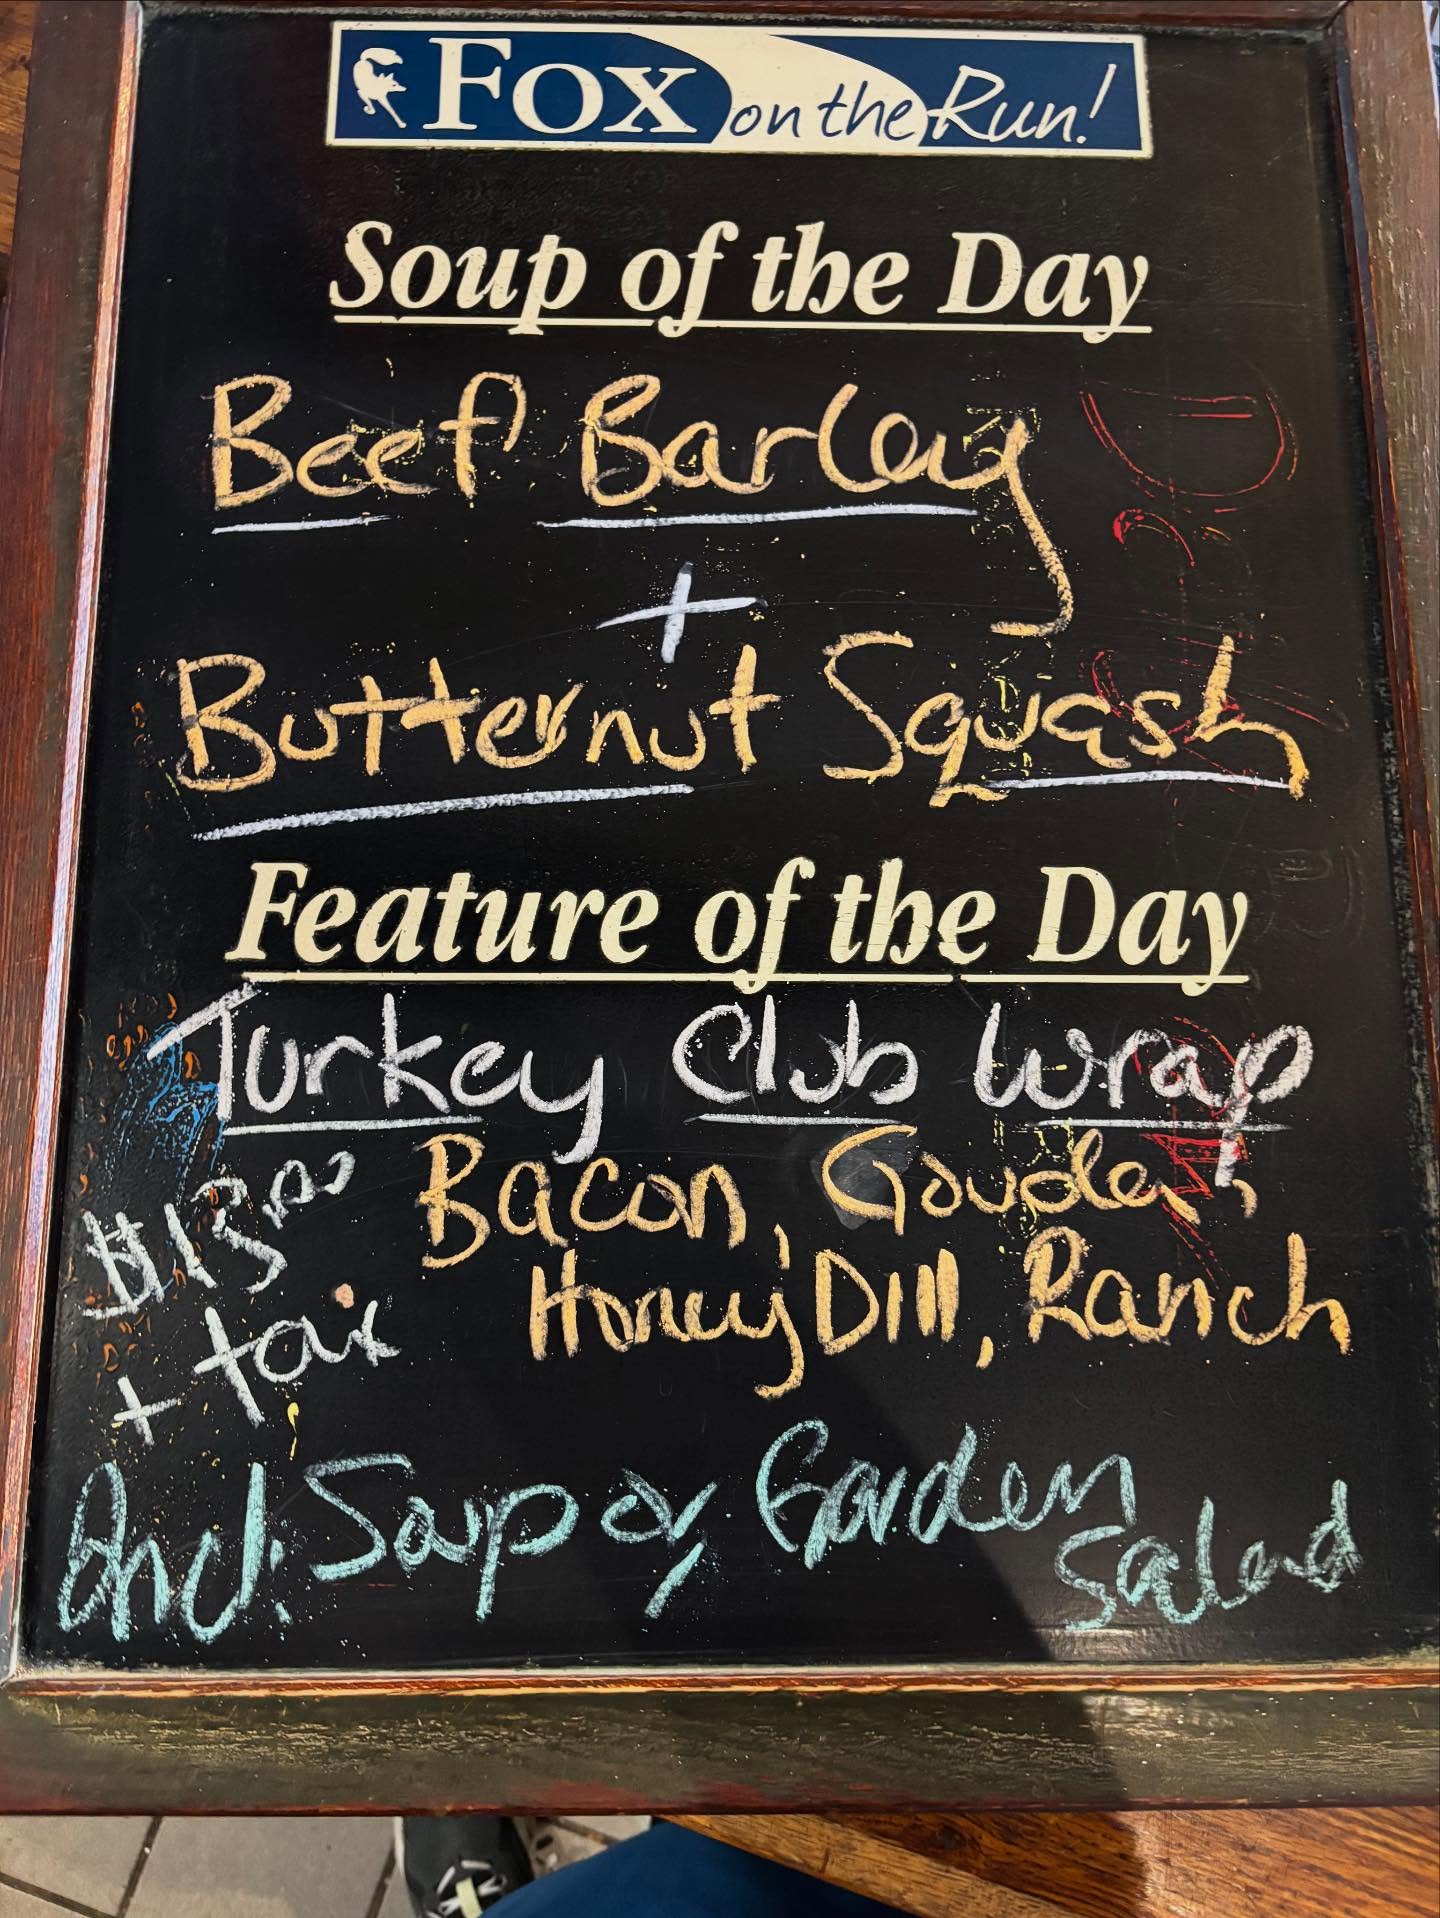 Fox on the Run!
Soup of the Day
Beef Barley
+
Butternut Squash
Feature of the Day
Turkey Club Wrap
$13.00
+ tax
Bacon, Gouda,
Honey Dill, Ranch
Incl. Soup or Garden
Salad